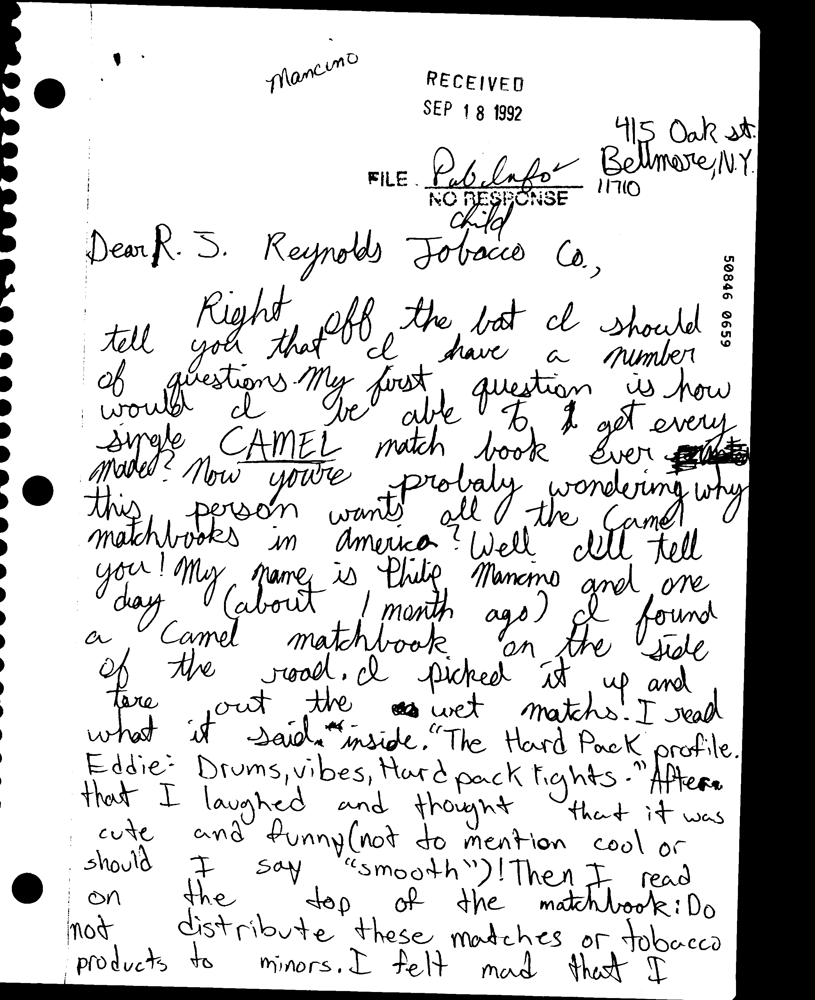 Mancino
RECEIVED
SEP 18 1992
415 Oak st.
Bellmore, N.Y.
11710
FILE Pub Info ✓
NO RESPONSE
child
Dear R. J. Reynolds Tobacco Co.,
Right off the bat I should
tell you that I have a number
of questions. My first question is how
would I be able to get every
single CAMEL match book ever
made? Now youre probaly wondering why
this person wants all the Camel
matchbooks in america? Well I'll tell
you! My name is Philip Mancino and one
day (about 1 month ago) I found
a Camel matchbook on the side
of the road. I picked it up and
tore out the wet matchs. I read
what it said inside. "The Hard Pack profile.
Eddie: Drums, vibes, Hard pack Lights." After
that I laughed and thought that it was
cute and funny (not to mention cool or
should I say "smooth")! Then I read
on the top of the matchbook: Do
not distribute these matches or tobacco
products to minors. I felt mad that I
50846 0659